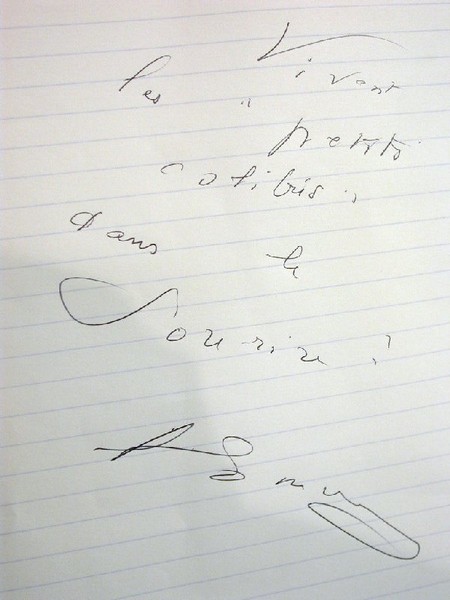 Vivent
les " petits
colibris "
dans le
Sourire !